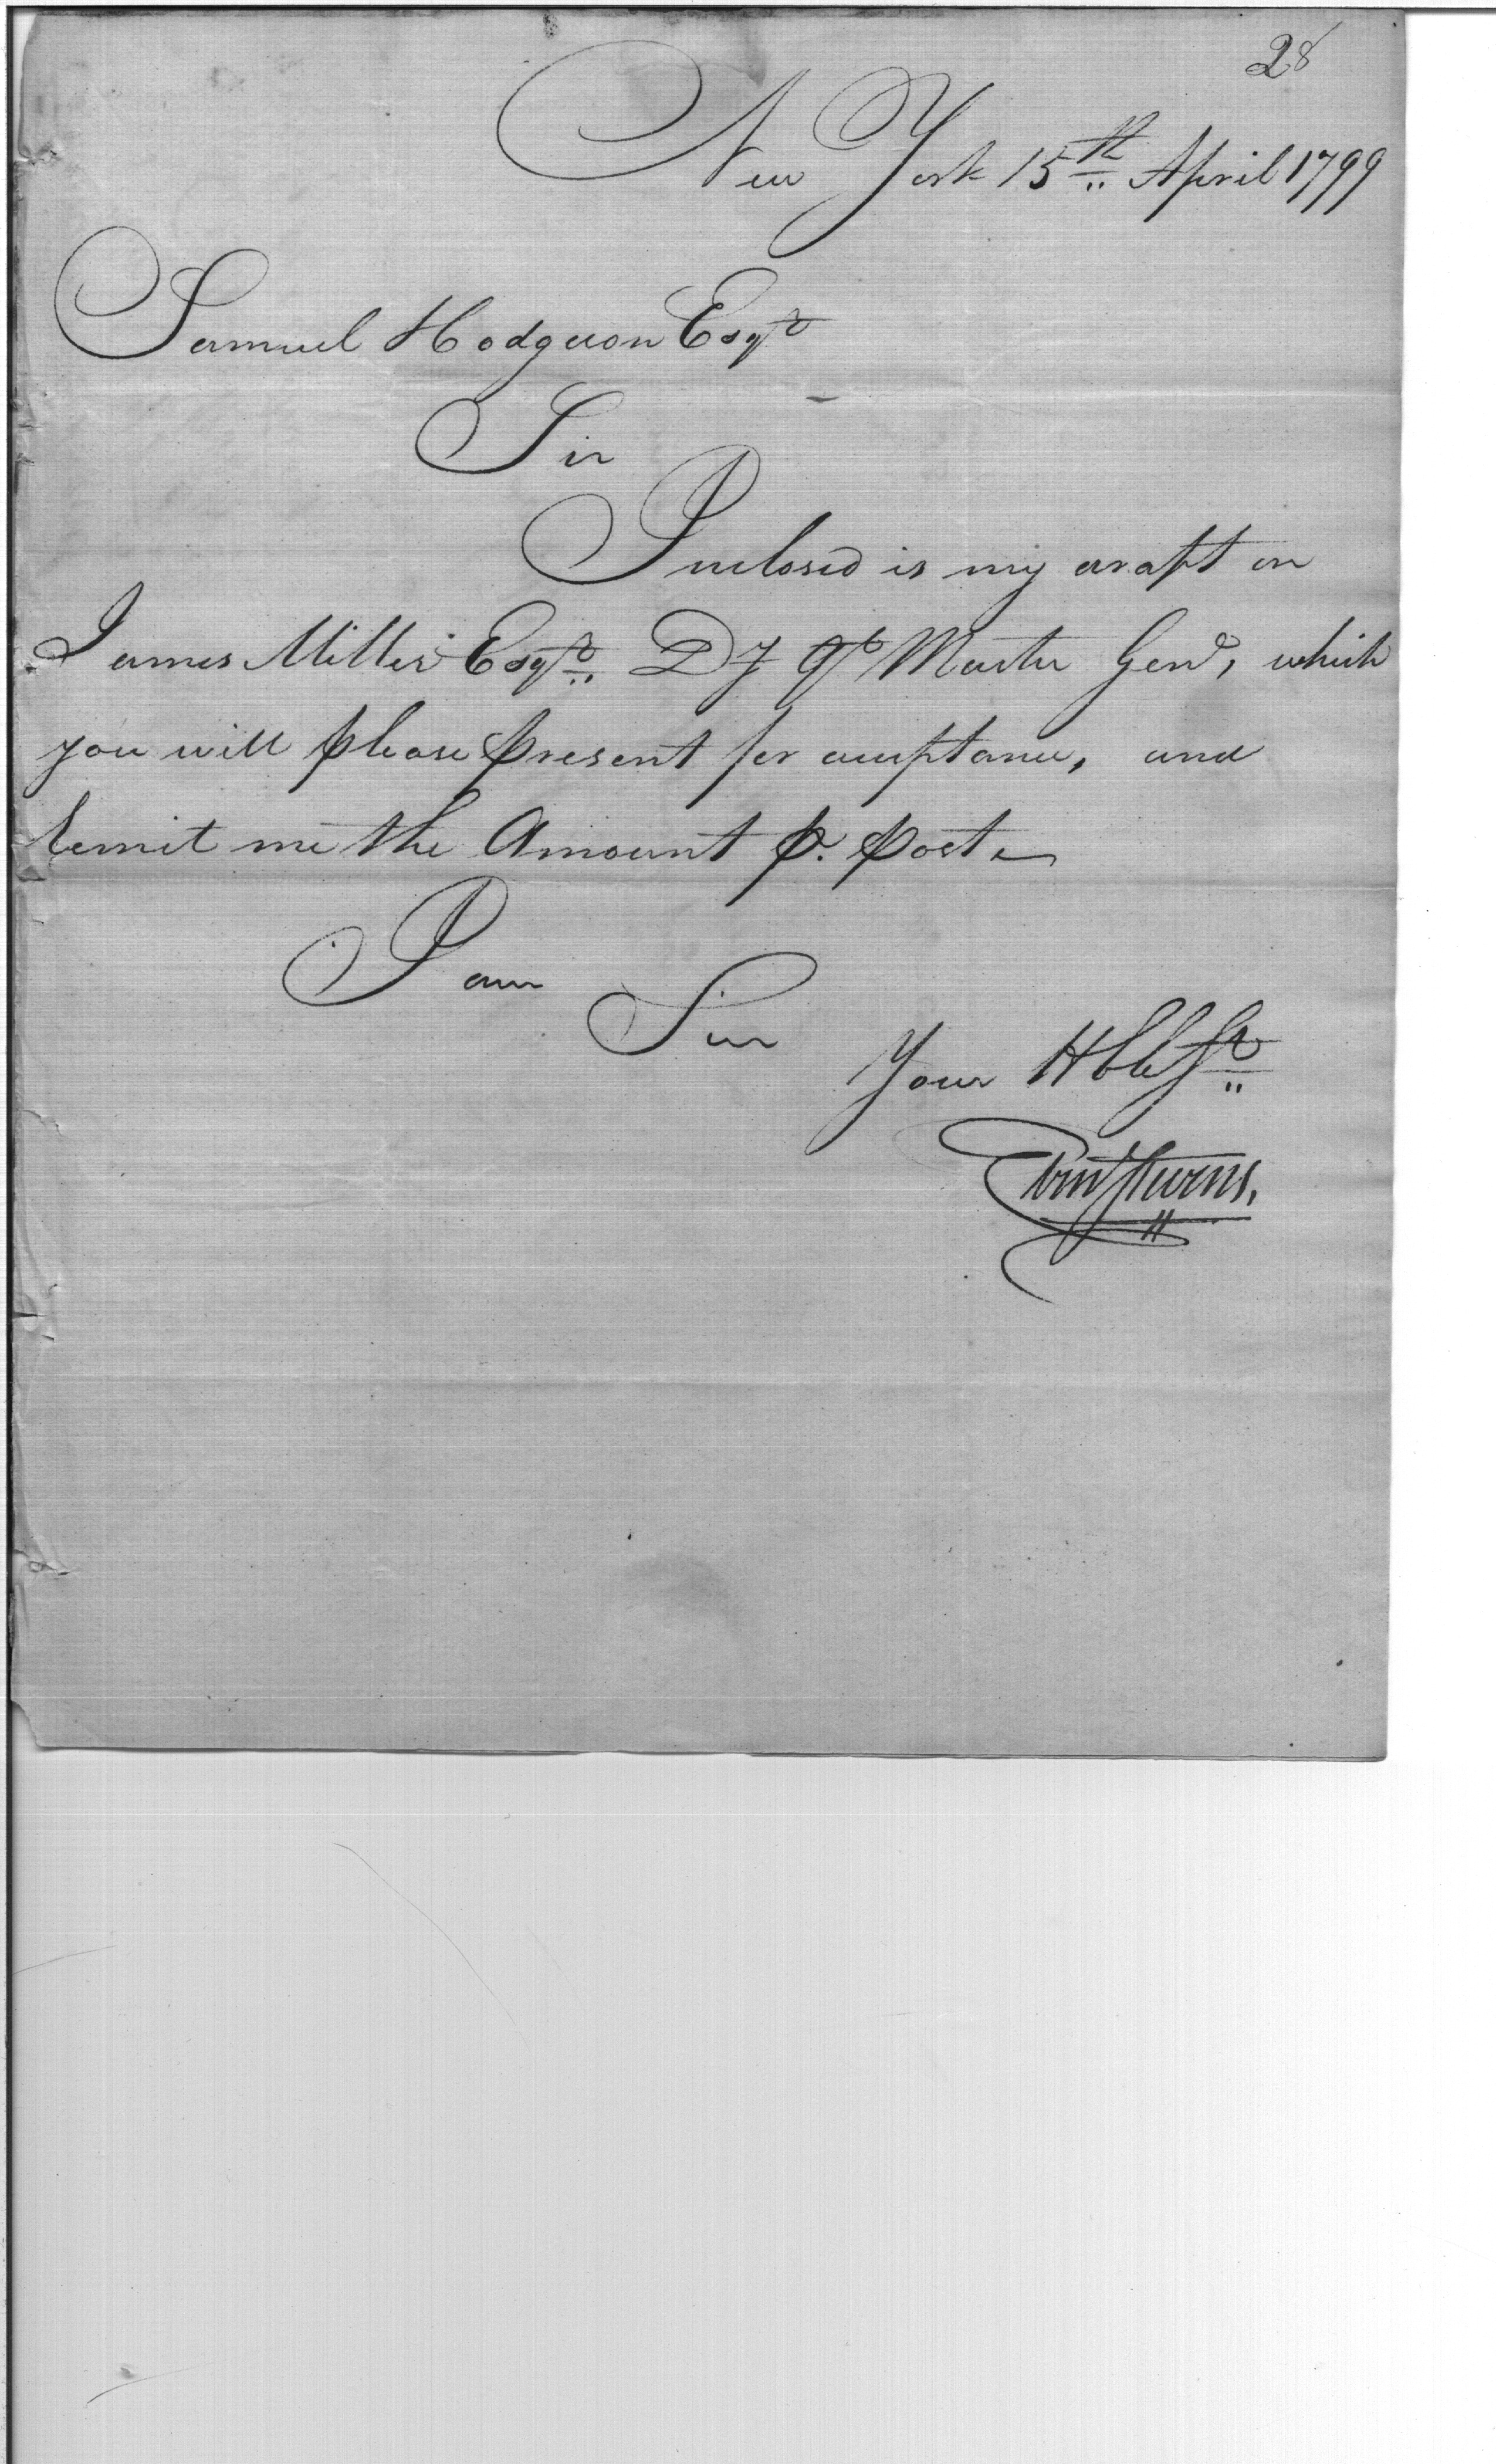 28
New York 15th April 1799
Samuel Hodgson Esqr
Sir
Inclosed is my draft on
James Miller Esqr. Dy Qr Master Genl, which
you will please present for acceptance, and
remit me the Amount p. post
I am
Sir
Your Hble St